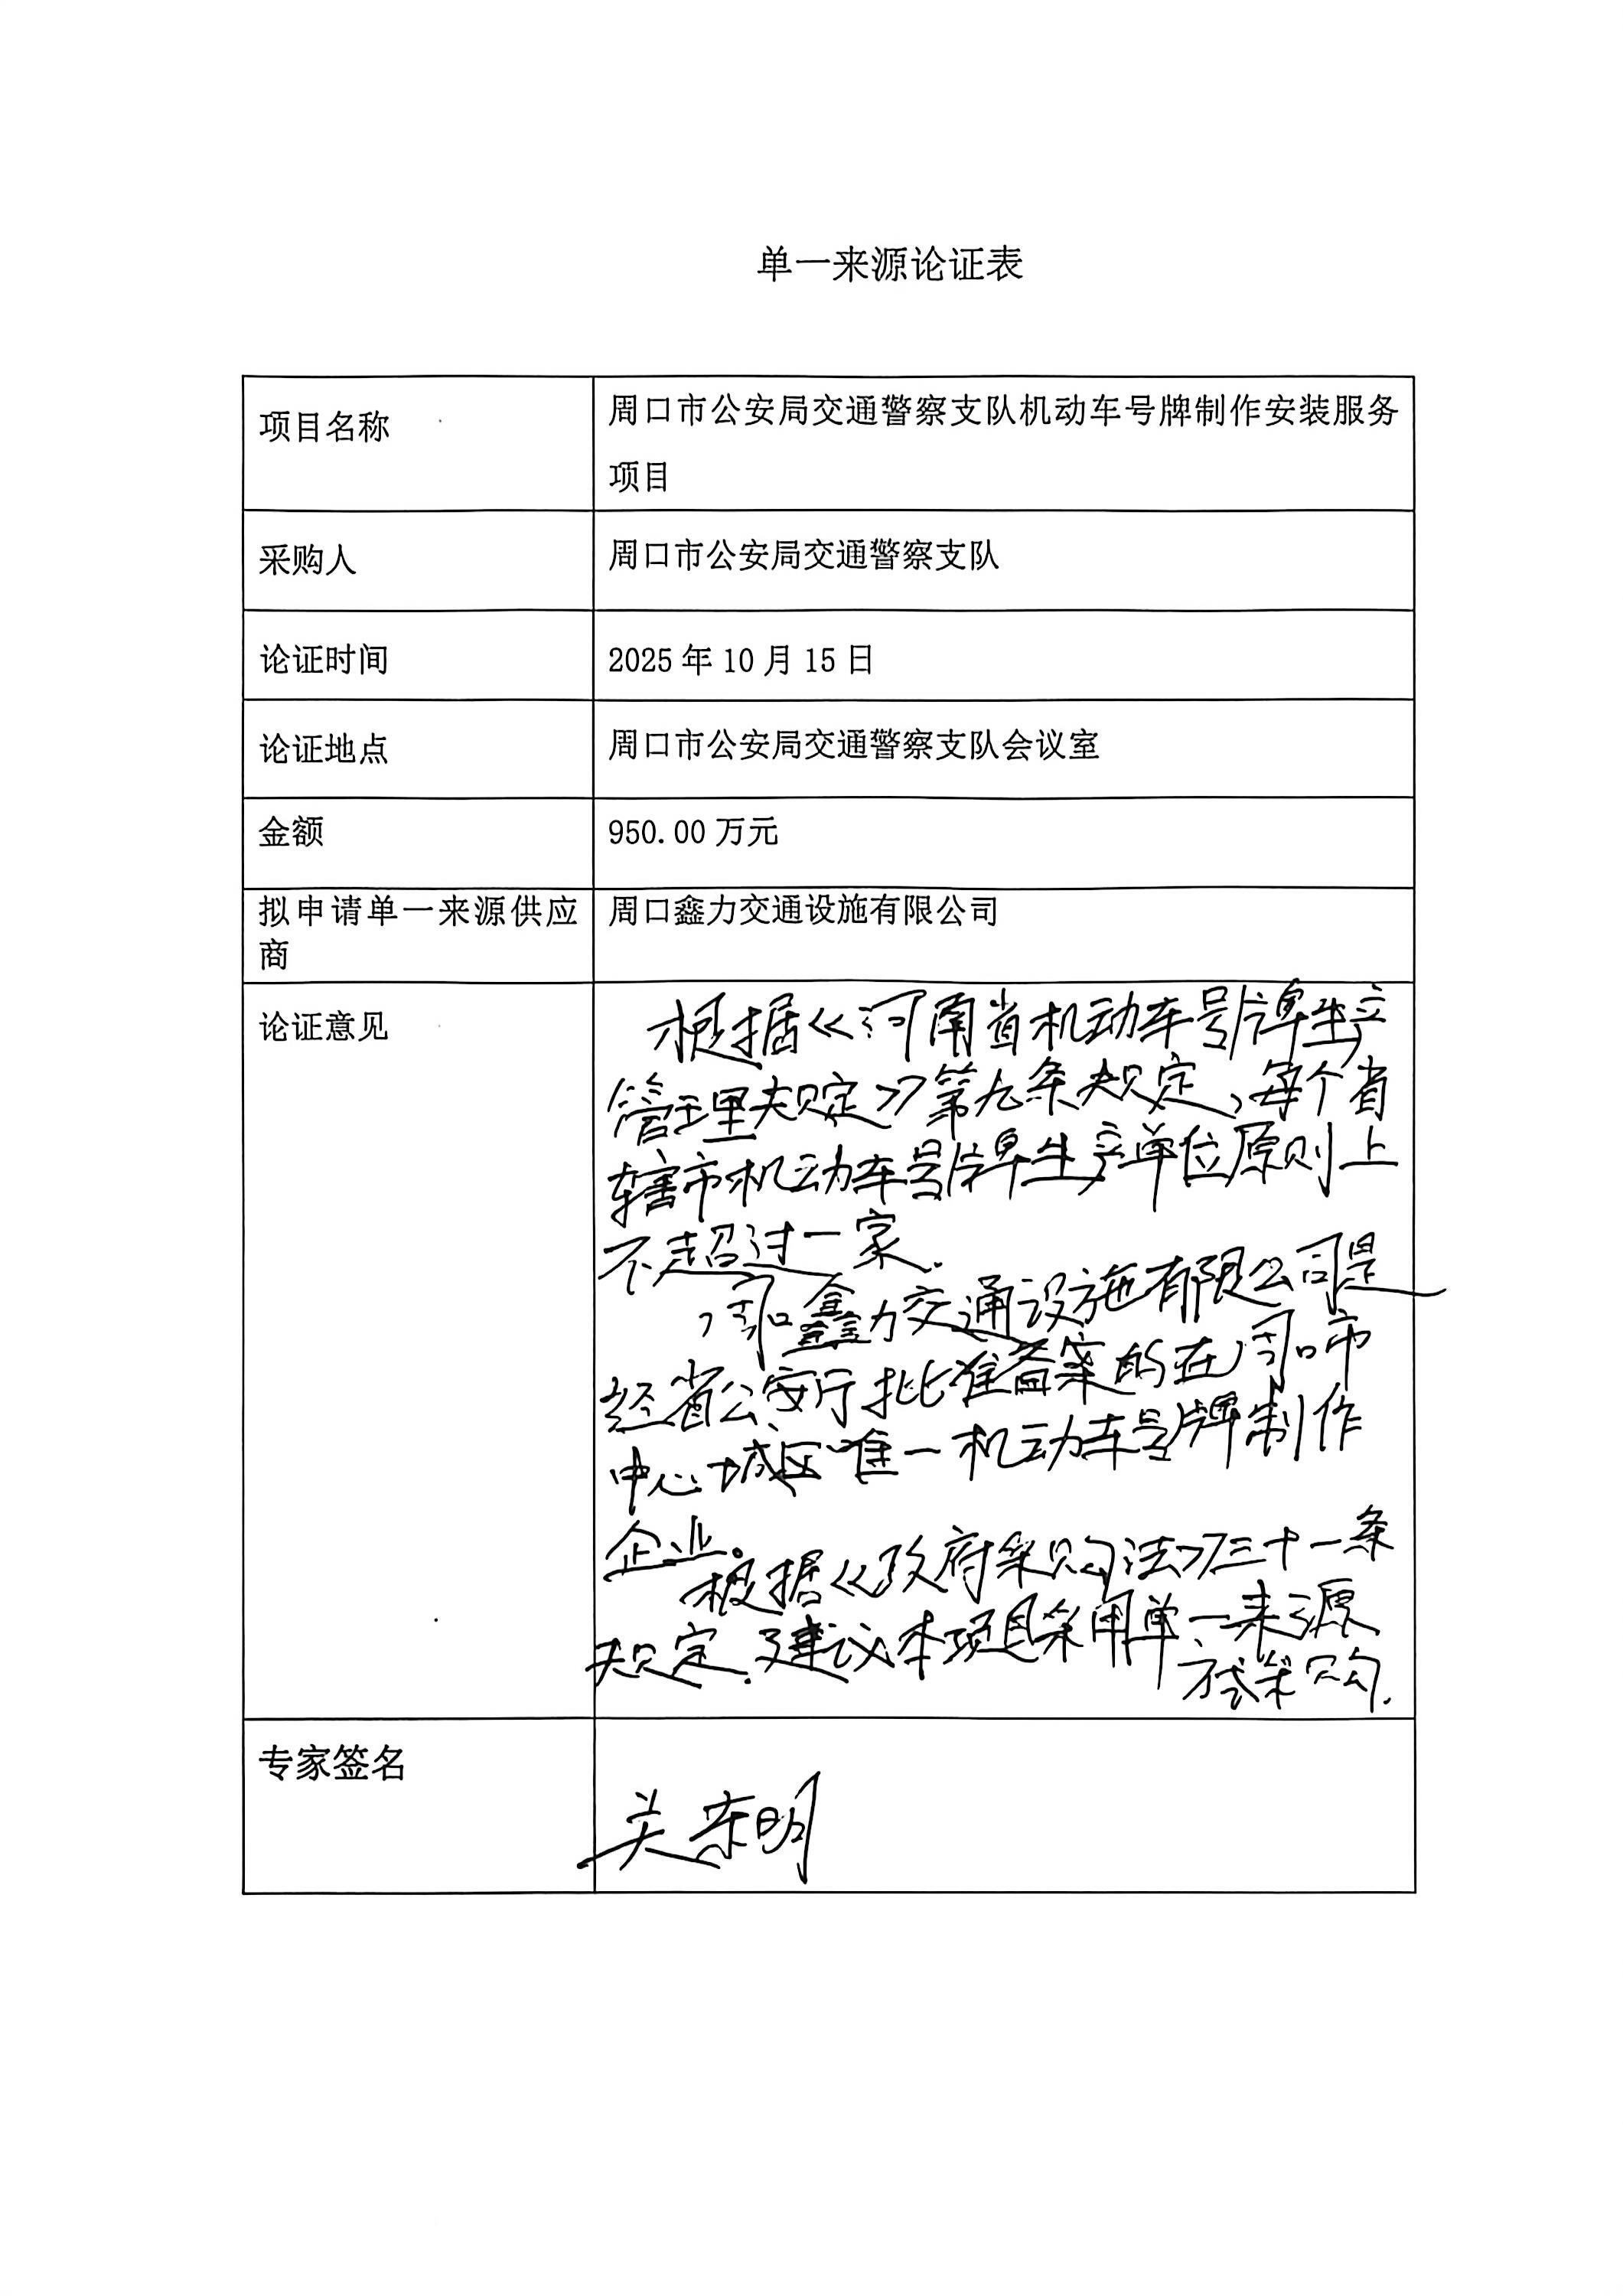 单一来源论证表
项目名称
周口市公安局交通警察支队机动车号牌制作安装服务
项目
采购人
周口市公安局交通警察支队
论证时间
2025年10月15日
论证地点
周口市公安局交通警察支队会议室
金额
950.00万元
拟申请单一来源供应
商
周口鑫力交通设施有限公司
论证意见
根据《河南省机动车号牌生产
管理规定》第九条规定,每个省
辖市机动车号牌生产单位原则上
不超过一家.
周口鑫力交通设施有限公司是
经省公安厅批准备案的在周口市
中心城区唯一机动车号牌制作
企业。
根据《政府采购法》三十一条
规定.建议本项目采用单一来源
方式采购.
专家签名
明